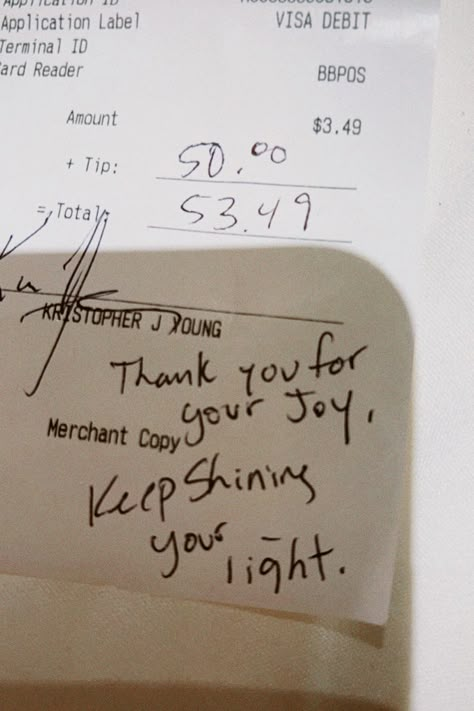 Application ID
Application Label VISA DEBIT
Terminal ID
Card Reader BBPOS
Amount $3.49
+ Tip: 50.00
= Total: 53.49
KRISTOPHER J YOUNG
Thank you for
your Joy,
Merchant Copy
Keep Shining
your
light.